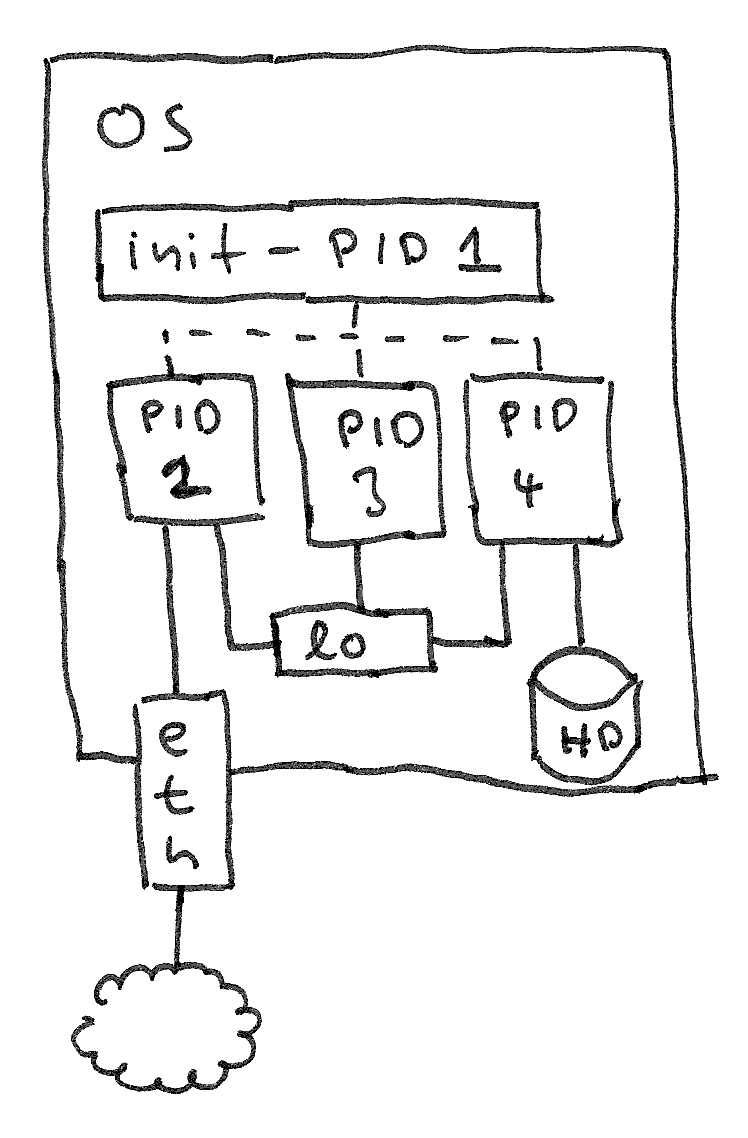 OS
init - PID 1
PID
2
PID
3
PID
4
lo
eth
HD